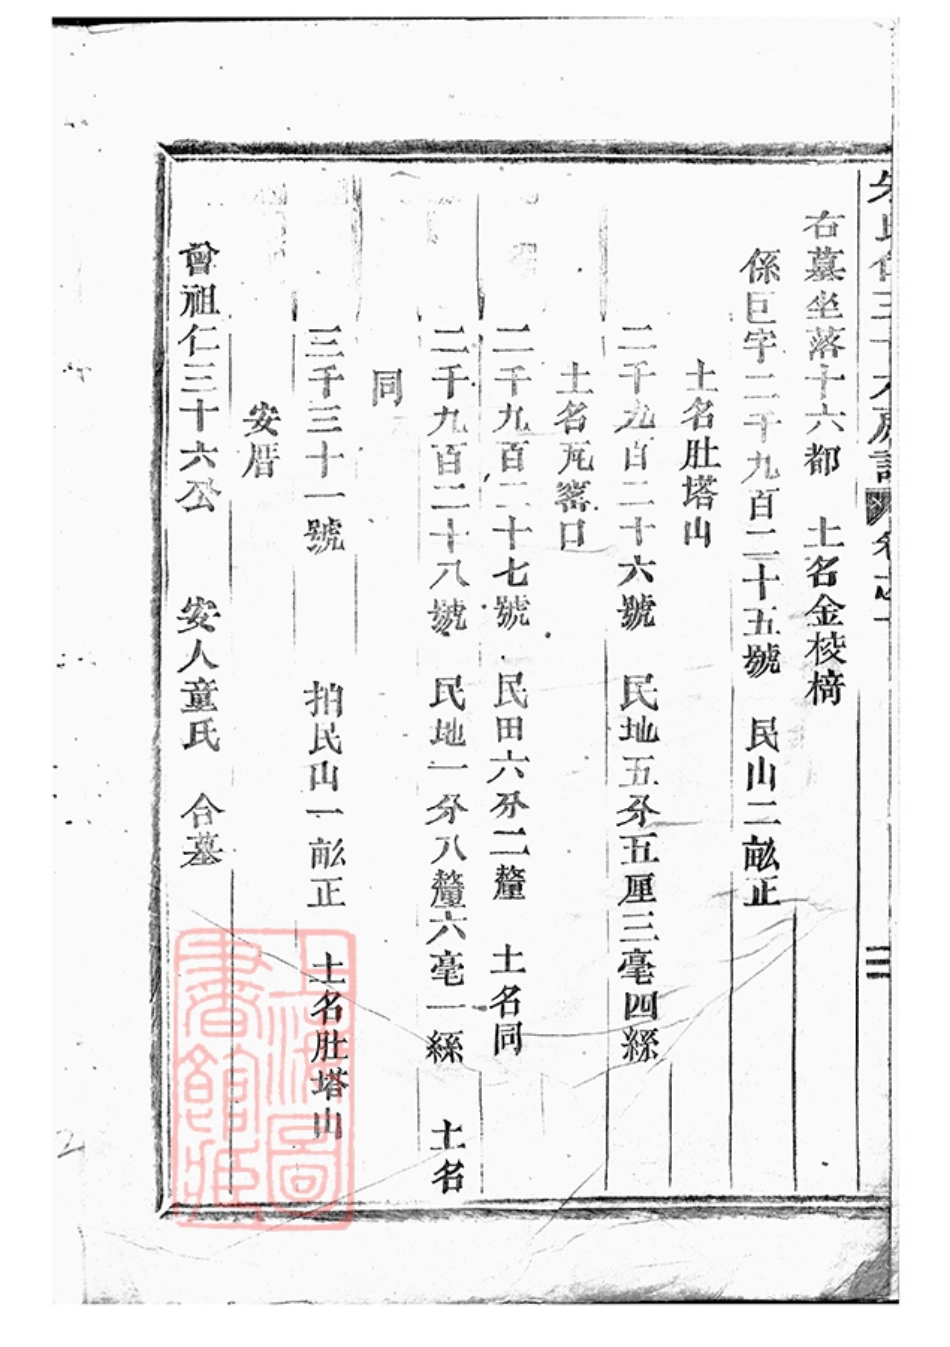 右墓坐落十六都　土名金棱㭳
係巨字二千九百二十五號　民山二畝正
土名肚塔山
二千九百二十六號　民地五分五厘三毫四絲
土名瓦窰口
二千九百二十七號　民田六分二釐　土名同
二千九百二十八號　民地一分八釐六毫一絲　土名
同
三千三十一號　拍民山一畝正　土名肚塔山
安厝
曾祖仁三十六公　安人童氏　合墓
上海圖書館藏